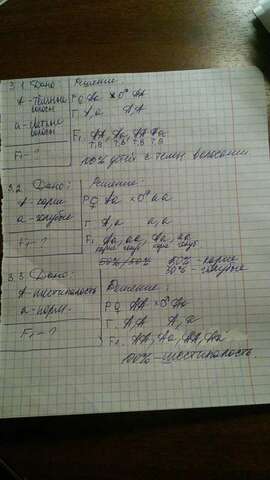 3.1. Дано Решение:
А - тёмные P ♀ Aa × ♂ AA
волосы Г. A, a A, A
а - светлые
волосы F₁ AA, Aa, AA Aa
Т.В Т.В Т.В Т.В
F₁ - ? 100% детей с темн. волосами
3.2. Дано: Решение:
А - карие P. ♀ Aa × ♂ aa
а - голубые Г. A, a a, a
F₁ - ? F₁ Aa, aa, Aa, aa
карие голуб карие голуб
50%/50% 50% - карие
50% - голубые
3.3. Дано: Решение:
А - шестипалость P. ♀ AA × ♂ Aa
а - норм. Г. A, A A, a
F₁ - ? F₁. AA, Aa, AA, Aa
100% - шестипалость.